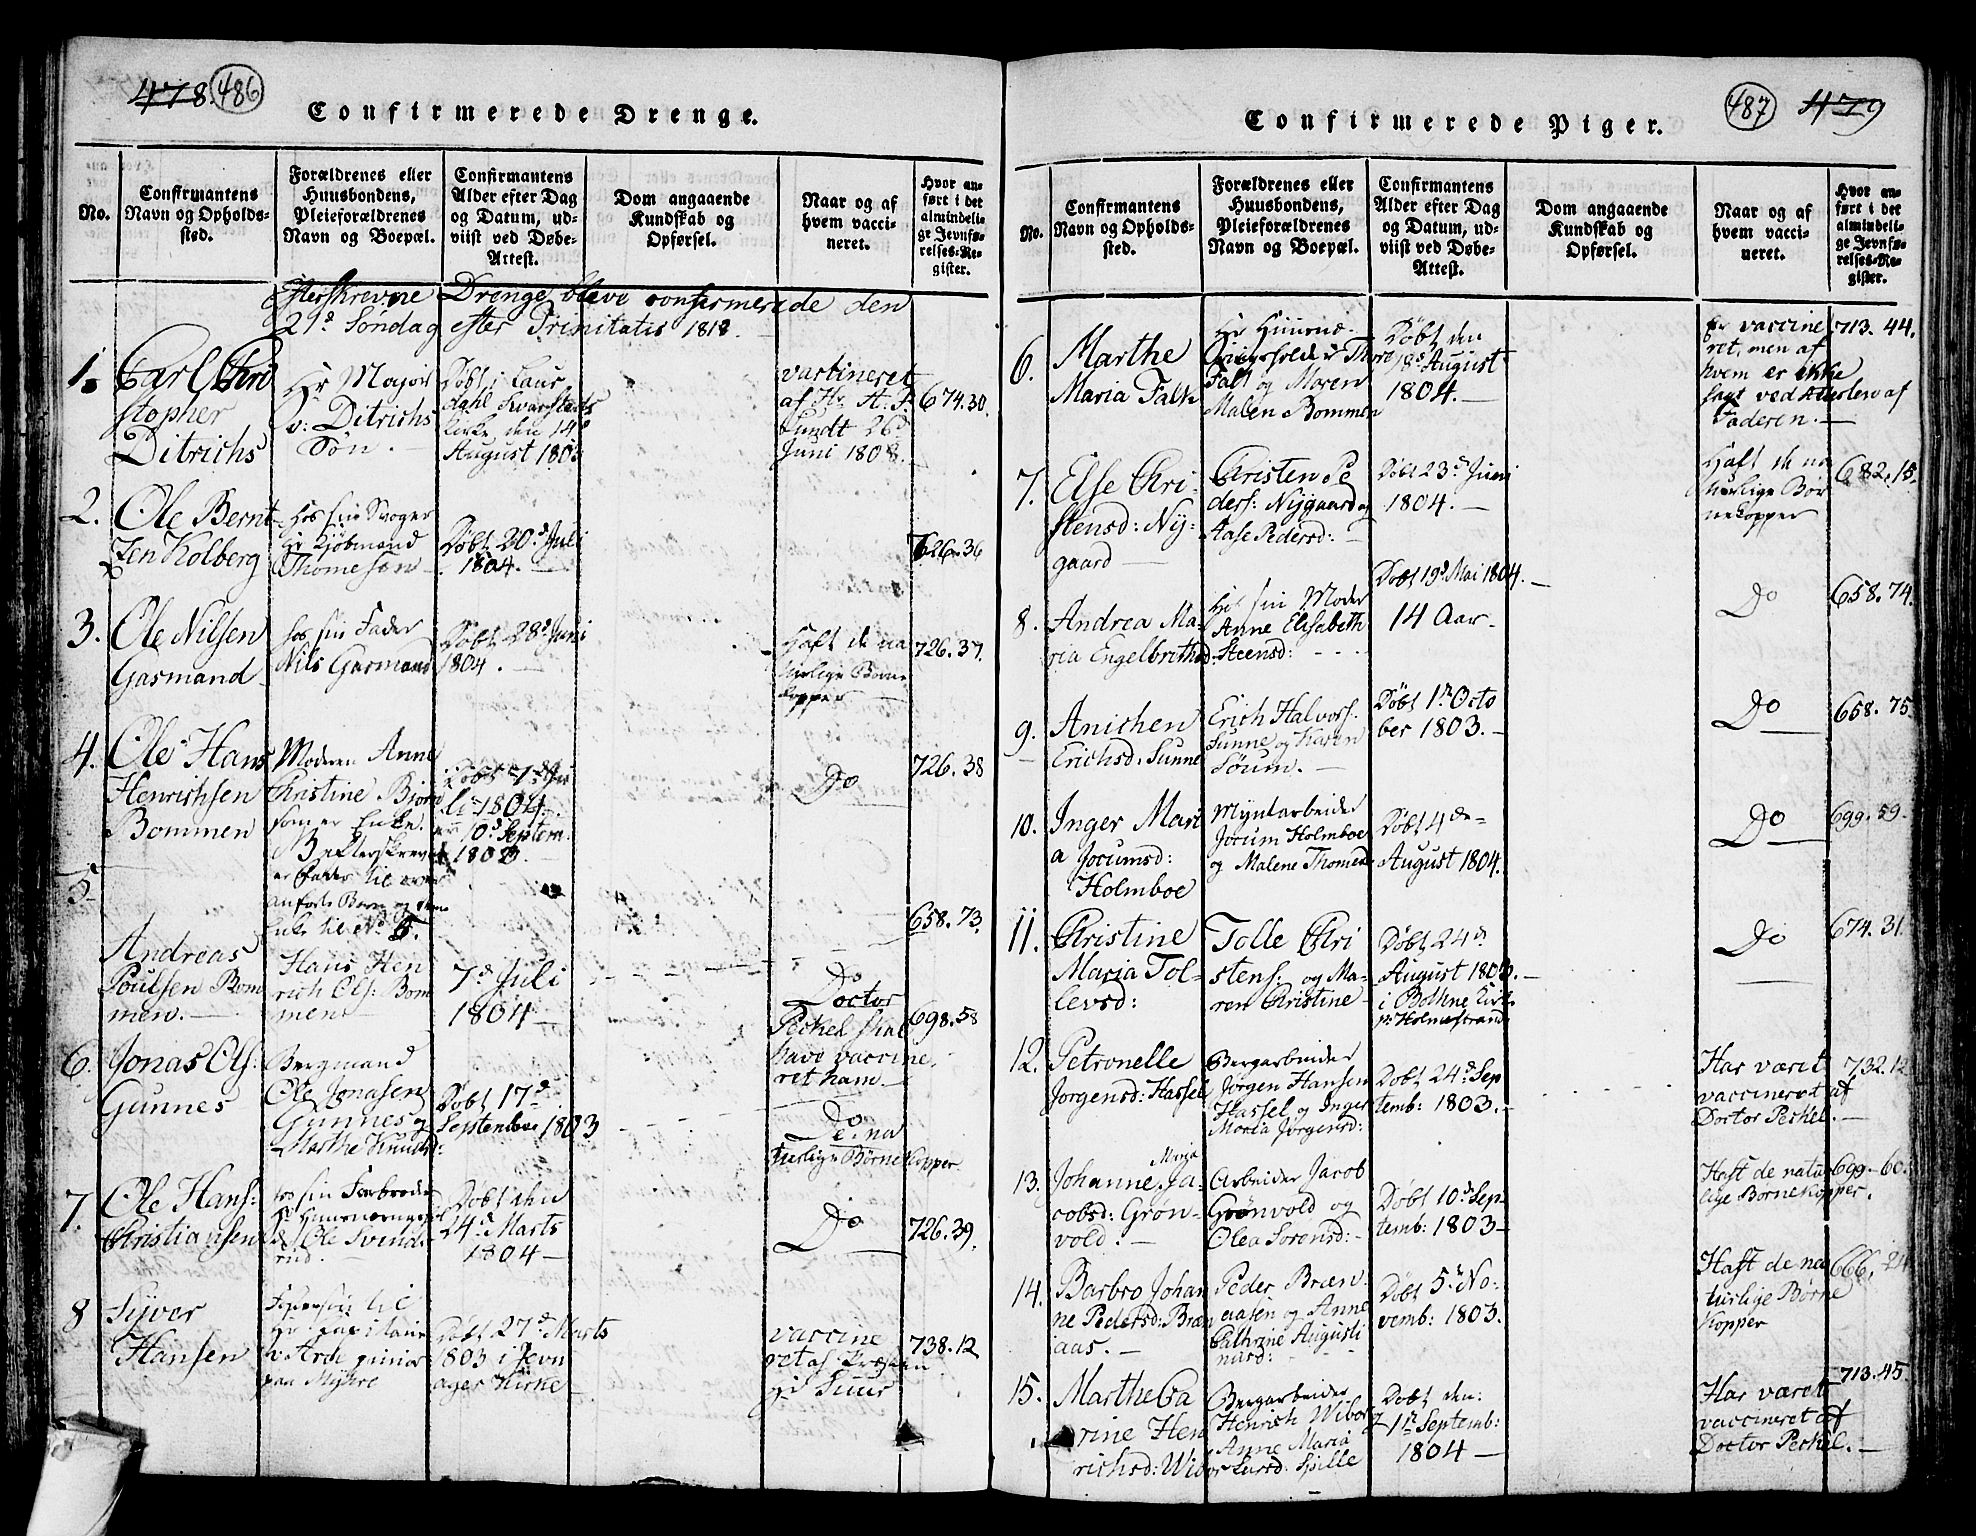 478. 486
Confirmerede Drenge.
No.
Confirmantens
Navn og Opholds-
sted.
Forældrenes eller
Huusbondens,
Pleieforældrenes
Navn og Boepæl.
Confirmantens
Alder efter Dag
og Datum, ud-
viist ved Døbe-
Attest.
Dom angaaende
Kundskab og
Opførsel.
Naar og af
hvem vacci-
neret.
Hvor an-
ført i det
almindeli-
ge Jevnfø-
relses-Re-
gister.
Efterskrevne Drenge bleve confirmerede den
21d Søndag efter Trinitatis 1818.
1.
Carl Chri
stopher
Ditrichs
Hr Major
v: Ditrichs
Søn.
Døbt i Laur
dahl Svarstads
Kirke den 14d
August 1803
vaccineret
af Hr. A. P.
Lundt 26d
Juni 1808.
674.30.
2.
Ole Bernt
sen Kolberg
Hos sin Svoger
Hr Kjøbmand
Thomesen
Døbt 20d Juli
1804.
726.36
3.
Ole Nilsen
Gasmand
hos sin Fader
Nils Gasmand
Døbt 28d Juni
1804.
Haft de na
turlige Børne
kopper
726.37.
4.
Ole Hans
Henrichsen
Bommen
Moderen Anne
Christine Bjørn
som er Enke.
Døbt 1d Ju
li 1804.
10d Septem.
1803
Do
726.38
5
NB efterskrevne
er Fader til oven
anførte Barn og
Enke til No 5.
658.73.
Andreas
Poulsen Bom
men.
Hans Hen
rich Ols: Bom
men
7d Juli
1804
Do
Doctor
Peckel skal
have vaccine
ret ham
698.58
6.
Jonas Ols:
Gunnes
Bergmand
Ole Jonasen
Gunnes og
Marthe Knudsd:
Døbt 17d
September 1803
Do
De na
turlige Børnekopper
7.
Ole Hans:
Christiansen
hos sin Farbroder
Ole Svend
rud.
Døbt den
24d Marts
1804
Do
726.39.
8
Syver
Hansen
Hr Capitain
v. Arch junior
paa Myhre
Døbt 27d Marts
1803 i Jevn
ager Kirke
vaccine
ret af Præsten
Hr Suur
738.12
487 479
Confirmerede Piger.
No.
Confirmantens
Navn og Opholds-
sted.
Forældrenes eller
Huusbondens,
Pleieforældrenes
Navn og Boepæl.
Confirmantens
Alder efter Dag
og Datum, ud-
viist ved Døbe-
Attest.
Dom angaaende
Kundskab og
Opførsel.
Naar og af
hvem vacci-
neret.
Hvor an-
ført i det
almindeli-
ge Jevnfø-
relses-Re-
gister.
6.
Marthe
Maria Falk
Thore
Falk og Maren
Malen Bommen
Døbt den
18d August
1804.
Er vaccine
ret, men af
hvem er ikke
sagt ved Attesten af
Faderen.
713.44.
7.
Else Chri-
stensd: Ny-
gaard
Christen Pe
ders: Nygaard og
Aase Pedersd:
Døbt 23d Juni
1804.
Haft de na
turlige Bør
nekopper
682.15.
8.
Andrea Ma-
ria Engelbrethsd:
Hos sin Moder
Anne Elisabeth
Steensd:
Døbt 19d Mai 1804.
14 Aar.
Do
658.74.
9.
Anichen
Erichsd: Sunne
Erich Halvors.
Sunne og Karen
Søum.
Døbt 1n Octo
ber 1803.
Do
658.75.
10.
Inger Mari
a Jocumsd:
Holmboe
Myntarbeider
Jocum Holmboe
og Malene Thomesd
Døbt 4de
August 1804.
Do
699.59.
11.
Christine
Maria Tol-
levsd:
Tolle Chri
stens. og Ma-
ren Christine
Døbt 24d
August 1803.
i Bothne Kirke
pr Holmestrand
Do
674.31.
12.
Petronelle
Jørgensd: Hassel
Bergarbeider
Jørgen Hansen
Hassel og Inger
Maria Jørgensd:
Døbt 24d Sep
temb: 1803.
Har været
vaccineret af
Doctor Peckel.
732.12
13.
Johanne Maria Ja-
cobsd: Grøn-
vold.
Arbeider Jacob
Grønvold og
Olea Sørensd:
Døbt 10d Sep-
temb: 1803
Haft de natur
lige Børnekopper.
699.60.
14.
Barbro Johan
ne Pedersd: Bræn
aas.
Peder Bræn
aasen og Anne
Cathrine Augusti
nusd:
Døbt 5n No:
vemb: 1803.
Haft de na
turlige Børne
kopper
666.24
15.
Marthe Ca
rine Hen
richsd: Wibor
Bergarbeider
Henrich Wibor
Anne Maria
Larsd: Spille
Døbt den:
1n Septemb:
1804
Har været
vaccineret af
Doctor Peckel.
713.45.